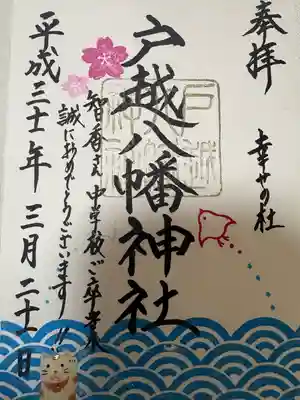 奉拝
幸せの杜
戸越八幡神社
智香さん中学校ご卒業
誠におめでとうございます!!
平成三十一年三月二十一日